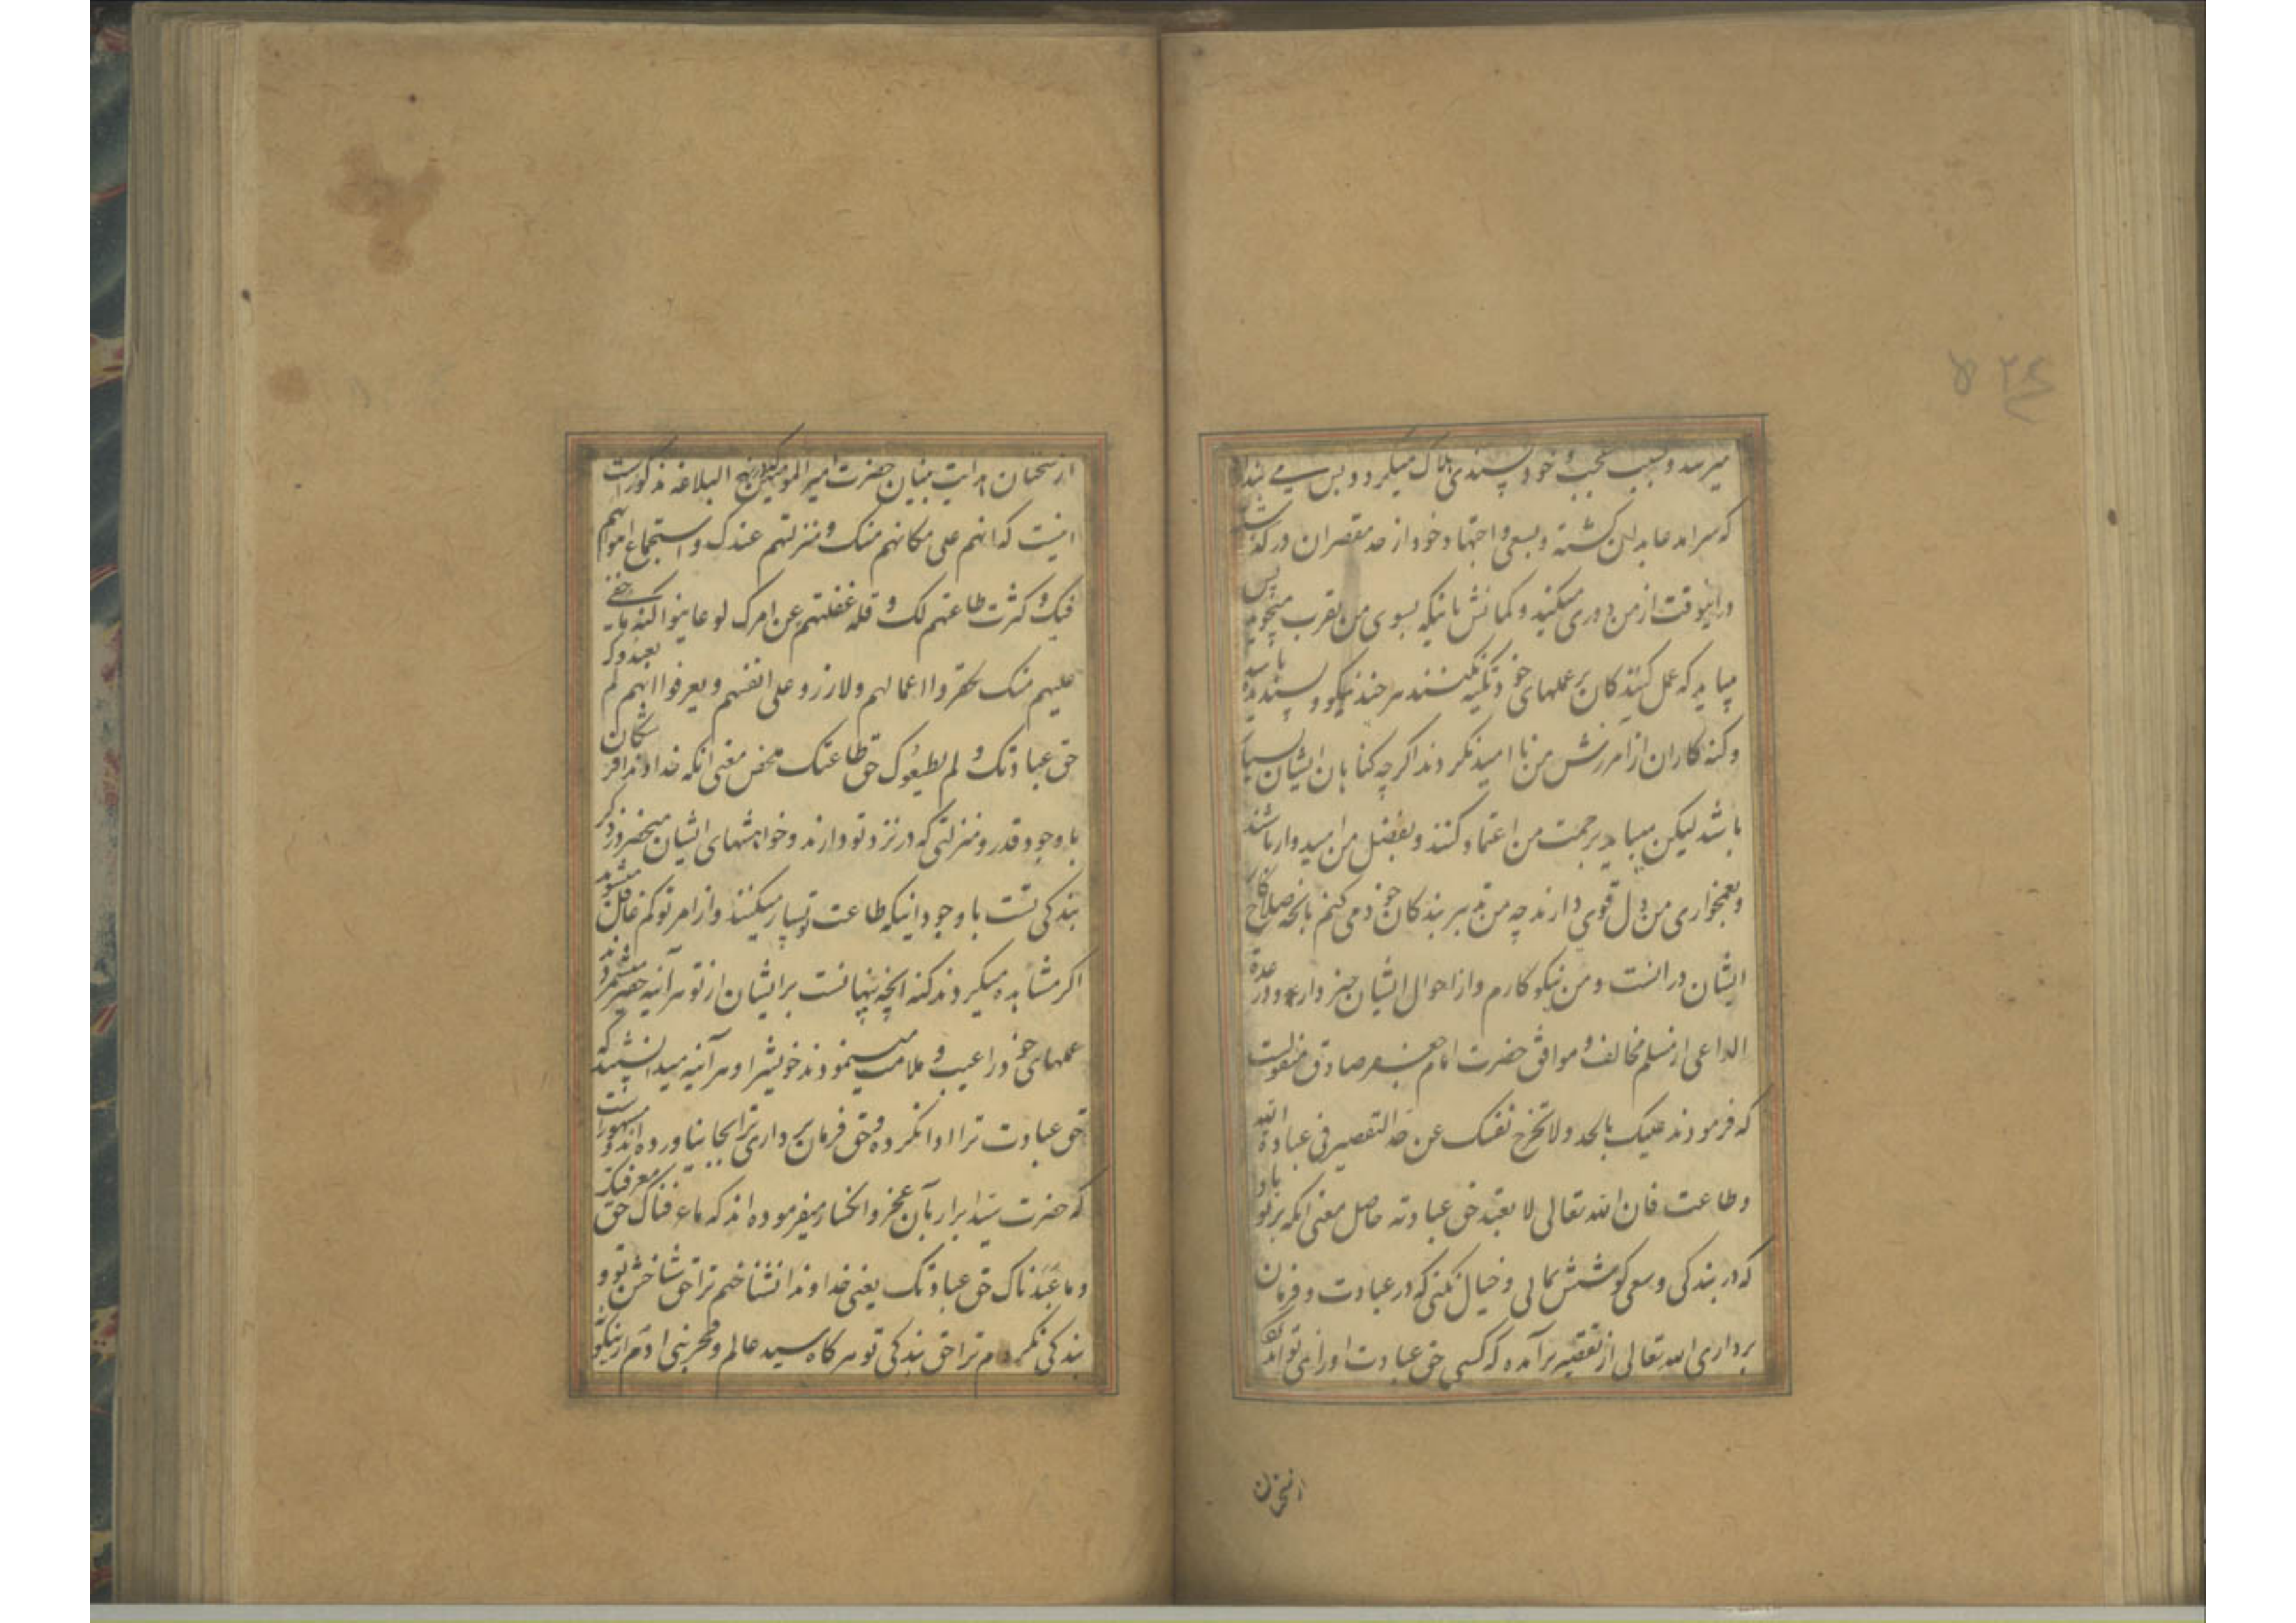 میرسد و بسبب عجب و خود پسندی هلاک میکردد و پس می پندارد
که سرامد عابدان کشته و بسعی و اجتهاد خود از حد مقصران درکذشته
و درانوقت از من دوری میکند و کمانش بانیکه بسوی من تقرب میجوید پس
میباید که عمل کنندکان بر عملهای خود تکیه نکنند هر چند نیکو و پسندیده باشد
و کنه کاران از آمرزش من نا امید نکردند اکر چه کناهان ایشان بسیار
باشد لیکن میباید برحمت من اعتماد کنند و بفضل من امیدوار باشند
و بغمخواری من دل قوی دارند چه من تدبیر بندکان خود می کنم بانچه صلاح کار
ایشان درانست و من نیکو کارم و از احوال ایشان خبر دارم و در عدة
الداعی از مسلم مخالف و موافق حضرت امام جعفر صادق منقولست
که فرمودند علیک بالجد و لا تخرج نفسک عن حد التقصیر فی عبادة الله
و طاعت فان الله تعالی لا یعبد حق عبادته حاصل معنی انکه بر تو باد
که در بندکی و سعی کوشش نمائی و خیال نکنی که در عبادت و فرمان
برداری الله تعالی از تقصیر برآمده که کسی حق عبادت او را نمی تواند
از سخنان
از سخنان هدایت بنیان حضرت امیر المومنین که در نهج البلاغه مذکور است
اینست که انهم علی مکانهم منک و منزلتهم عندک و استجماع اهوائهم
فیک و کثرت طاعتهم لک و قلة غفلتهم عن امرک لو عاینوا کنه ما خفی
علیهم منک لحقروا اعمالهم و لازروا علی انفسهم و یعرفوا انهم لم یعبدوک
حق عبادتک و لم یطیعوک حق طاعتک ملخص معنی انکه خداوندا فرشتکان
با وجود قدر و منزلتی که در نزد تو دارند و خواهشهای ایشان منحصر در ذکر
بندکی تست با وجود انیکه طاعت تو بسیار میکنند و از امر تو کم غافل میشوند
اکر مشاهده میکردند کنه انچه پنهانست بر ایشان از تو هر آینه حقیر میشمردند
عملهای خود را عیب و ملامت مینمودند خویش را و هر آینه میدانستند که
حق عبادت ترا ادا نکرده و حق فرمان برداری ترا بجا نیاورده اند و مشهور است
که حضرت سید ابرار بآن عجز و انکسار میفرموده اند که ما عرفناک حق معرفتک
و ما عبدناک حق عبادتک یعنی خداوندا نشناختم ترا حق شناختن تو و
بندکی نکردم ترا حق بندکی تو هر کاه سید عالم و فخر بنی آدم از نیکو